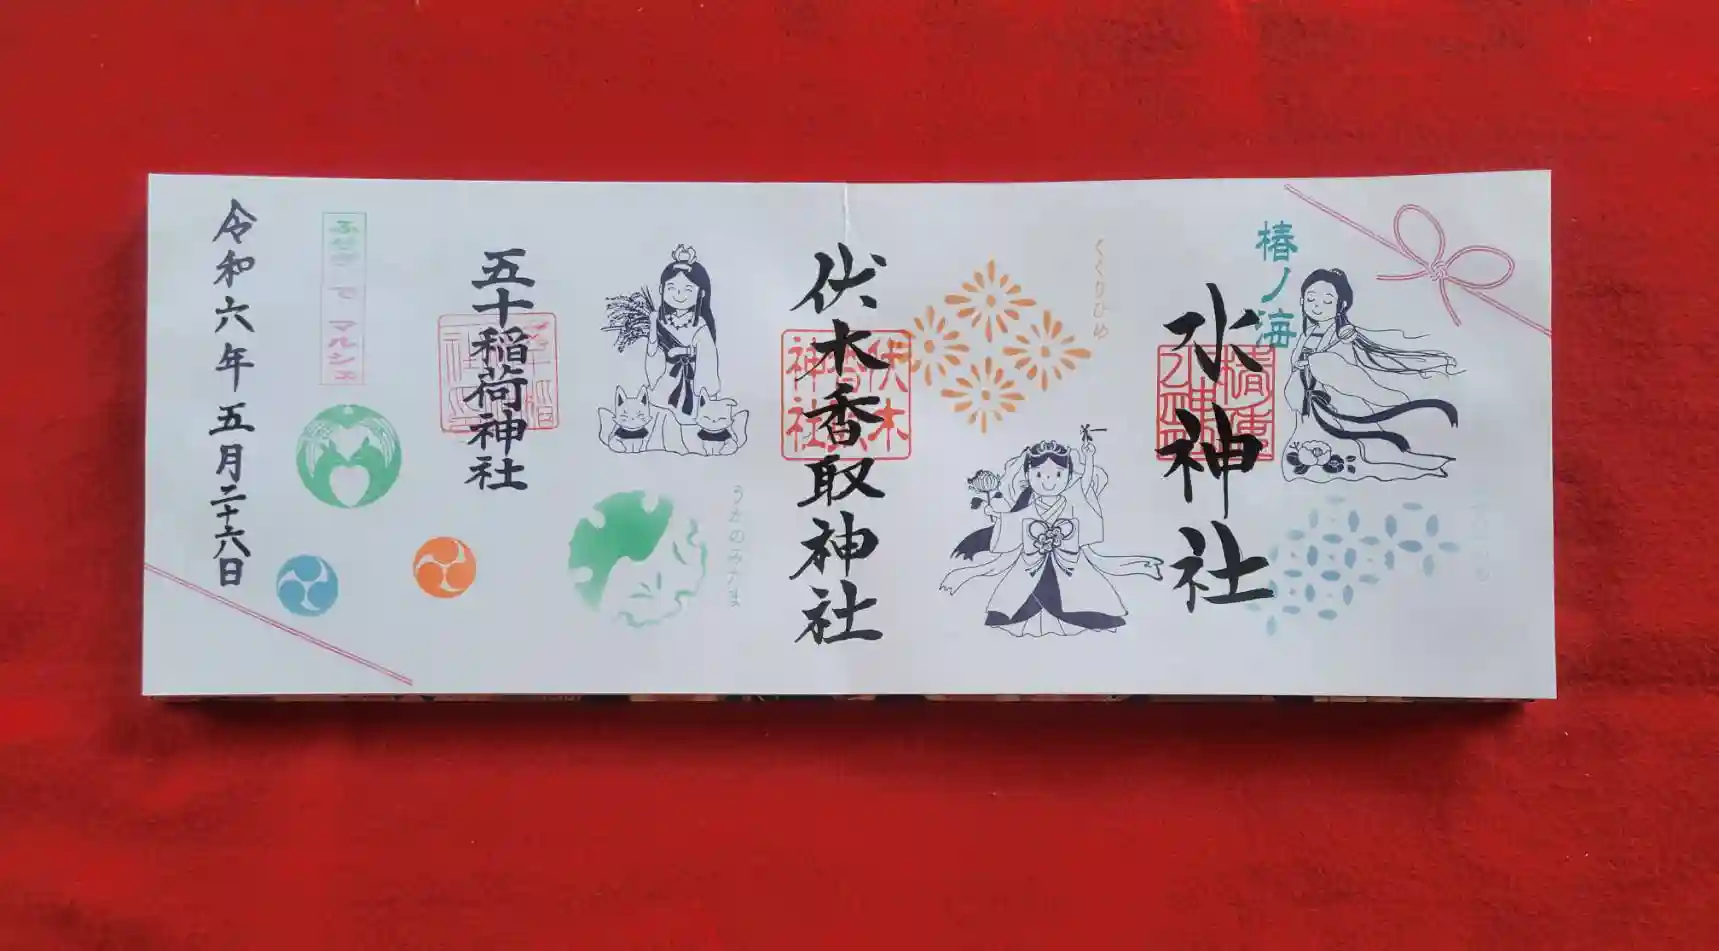 椿ノ海
水神社
くくりひめ
伏木香取神社
伏木
神社
うかのみたま
五十稲荷神社
ふせぎ で マルシェ
令和六年五月二十六日